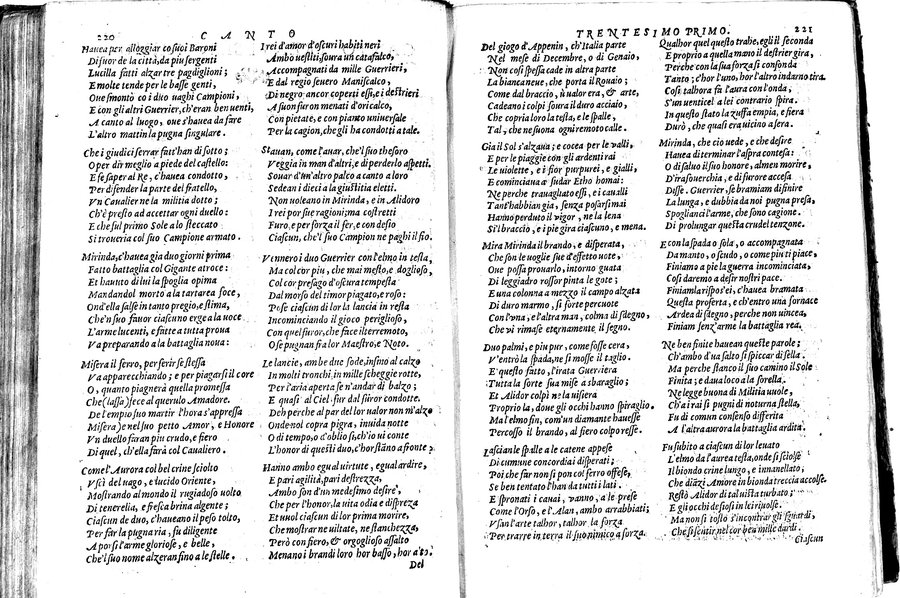 220 CANTO
Hauea per alloggiar co suoi Baroni
Di fuor de la città, da piu sergenti
Lucilla fatti alzar tre padiglioni;
E molte tende per le basse genti,
Oue smontò co i duo uaghi Campioni,
E con gli altri Guerrier, ch'eran ben uenti,
A canto al luogo, oue s'hauea da fare
L'altro mattin la pugna singulare.
Che i giudici serrar fatt'han di sotto;
Oper dir meglio a piede del castello:
E fe saper al Re, c'hauea condotto,
Per difender la parte del fratello,
Vn Caualier ne la militia dotto;
Ch'è presto ad accettar ogni duello:
E che sul primo Sole a lo steccato
Si troueria col suo Campione armato.
Mirinda, c'hauea gia duo giorni prima
Fatto battaglia col Gigante atroce:
Et hauuto di lui la spoglia opima
Mandandol morto a la tartarea foce,
Ond'ella salse in tanto pregio, e stima,
Che'n suo fauor ciascuno erge la uoce
L'arme lucenti, e fatte a tutta proua
Va preparando a la battaglia noua:
Misera il ferro, per ferir se stessa
Va apparecchiando; e per piagarsi il core
O, quanto piagnerà quella promessa
Che (lassa) fece al querulo Amadore.
De l'empio suo martir l'hora s'appressa
Misera; e nel suo petto Amor, e Honore
Vn duello faran piu crudo, e fiero
Di quel, ch'ella farà col Caualiero.
Come l'Aurora col bel crine sciolto
Vscì del uago, e lucido Oriente,
Mostrando al mondo il rugiadoso uolto
Di tenerelia, e fresca brina algente;
Ciascun de duo, c'haueano il peso tolto,
Per far la pugna ria, su diligente
A porsi l'arme gloriose, e belle,
Che'l suo nome alzeran sino a le stelle.
I rei d'amor d'oscuri habiti neri
Ambo uestiti, soura un catafalco,
Accompagnati da mille Guerrieri,
E dal regio seuero Maniscalco,
Di negro ancor coperti essi, e i destrieri
A suon suron menati d'oricalco,
Con pietate, e con pianto uniuersale
Per la cagion, che gli ha condotti a tale.
Stauan, come l'auar, che'l suo thesoro
Veggia in man d'altri, e di perderlo aspetti.
Souar d'un'altro palco a canto a loro
Sedean i dieci a la giustitia eletti.
Non uoleano in Mirinda, e in Alidoro
I rei por sue ragioni; ma costretti
Furo, e per forza il fer, e con desio
Ciascun, che'l suo Campion ne paghi il fio.
Vennero i duo Guerrier con l'elmo in testa,
Ma col cor piu, che mai mesto, e doglioso,
Col cor presago d'oscura tempesta
Dal morso del timor piagato, e roso:
Pose ciascun di lor la lancia in resta
Incominciando il gioco periglioso,
Con quel furor, che face il terremoto,
Ose pugnan fra lor Maestro, e Noto.
Le lancie, ambe due sode, insino al calzo
In molti tronchi, in mille schegge rotte,
Per l'aria aperta se n'andar di balzo;
E quasi al Ciel fur dal furor condotte.
Deh perche al par del lor ualor non m'alzo
Onde nol copra pigra, inuida notte
O di tempo, o d'oblio sì, ch'io ui conte
L'honor di questi duo, c'hor stāno a fronte?
Hanno ambo egual uirtute, egual ardire,
E pari agilità, pari destrezza,
Ambo son d'un medesimo desire,
Che per l'honor, la uita odia e disprezza
Et uuol ciascun di lor prima morire,
Che mostrarne uiltate, ne stanchezza,
Però con fiero, & orgoglioso assalto
Menano i brandi loro hor basso, hor alto.
Del
TRENTESIMOPRIMO. 221
Del giogo d'Appenin, ch'Italia parte
Nel mese di Decembre, o di Genaio,
Non così spessa cade in altra parte
La bianca neue, che porta il Rouaio;
Come dal braccio, ù ualor era, & arte,
Cadeano i colpi soura il duro acciaio,
Che copria loro la testa, e le spalle,
Tal, che ne suona ogni remoto calle.
Gia il Sol s'alzaua; e cocea per le valli,
E per le piaggie con gli ardenti rai
Le uiolette, e i fior purpurei, e gialli,
E cominciaua a sudar Etho homai:
Ne perche trauagliato essi, e i caualli
Tant'habbian gia, senza posar si mai
Hanno perduto il vigor, ne la lena
Sì'l braccio, e il pie gira ciascuno, e mena.
Mira Mirinda il brando, e disperata,
Che son le uoglie sue d'effetto uote,
Oue possa prouarlo, intorno guata
Di leggiadro rossor pinta le gote;
E una colonna a mezzo il campo alzata
Di duro marmo, sì forte percuote
Con l'una, e l'altra man, colma di sdegno,
Che vi rimase eternamente il segno.
Duo palmi, e piu pur, come fosse cera,
V'entrò la spada, ne si mosse il taglio.
E'questo fatto, l'irata Guerriera
Tutta la forte sua mise a sbaraglio;
Et Alidor colpì ne la uisiera
Proprio la, doue gli occhi hanno spiraglio.
Ma l'elmo fin, com'un diamante hauesse
Percosso il brando, al fiero colpo resse.
Lascian le spalle a le catene appese
Di commune concordia i disperati;
Poi che far non si pon col ferro offese,
Se ben tentato l'han da tutti i lati.
E spronati i cauai, vanno, a le prese
Come l'Orso, e l'Alan, ambo arrabbiati;
Vsan l'arte talhor, talhor la forza
Per trarre in terra il suo nimico a forza.
Qualhor quel questo trahe, egli il seconda
E proprio a quella mano il destrier gira,
Perche con la sua forza si confonda
Tanto; c'hor l'uno, hor l'altro indarno tira.
Così talhora fa l'aura con l'onda,
S'un uenticel a lei contrario spira.
In questo stato la zuffa empia, e fiera
Durò, che quasi era uicino a sera.
Mirinda, che ciò uede, e che desire
Hauea di terminar l'aspra contesa:
O di salao il suo honore, almen morire,
D'ira souerchia, e di furore accesa
Disse. Guerrier, se bramiam di finire
La lunga, e dubbia da noi pugna presa,
Spoglianci l'arme, che sono cagione.
Di prolungar questa crudel tenzone.
E con la spada sola, o accompagnata
Da manto, o scudo, o come piu ti piace,
Finiamo a pie la guerra incominciata,
Così daremo a desir nostri pace.
Finiamla rispos'ei, c'hauea bramata
Questa proferta, e ch'entro una fornace
Ardea di sdegno, perche non uincea,
Finiam senz'arme la battaglia rea.
Ne ben finite hauean queste parole;
Ch'ambo d'un salto si spiccar di sella.
Ma perche stanco il suo camino il Sole
Finita; e daua loco a la sorella.
Ne legge buona di Militia uuole,
Ch'a i rai si pugni di notturna stella,
Fu di comun consenso differita
A l'altra aurora la battaglia ardita.
Fu subito a ciascun di lor leuato
L'elmo da l'aurea testa, onde si sciolse
Il biondo crine lungo, e innanellato,
Che diāzi Amore in bionda treccia accolse.
Restò Alidor di tal uista turbato;
E gli occhi desiosi in lei riuolse.
Ma non sì tosto s'incontrar gli sguardi,
Che si sentir nel cor ben mille dardi.
Ciascun